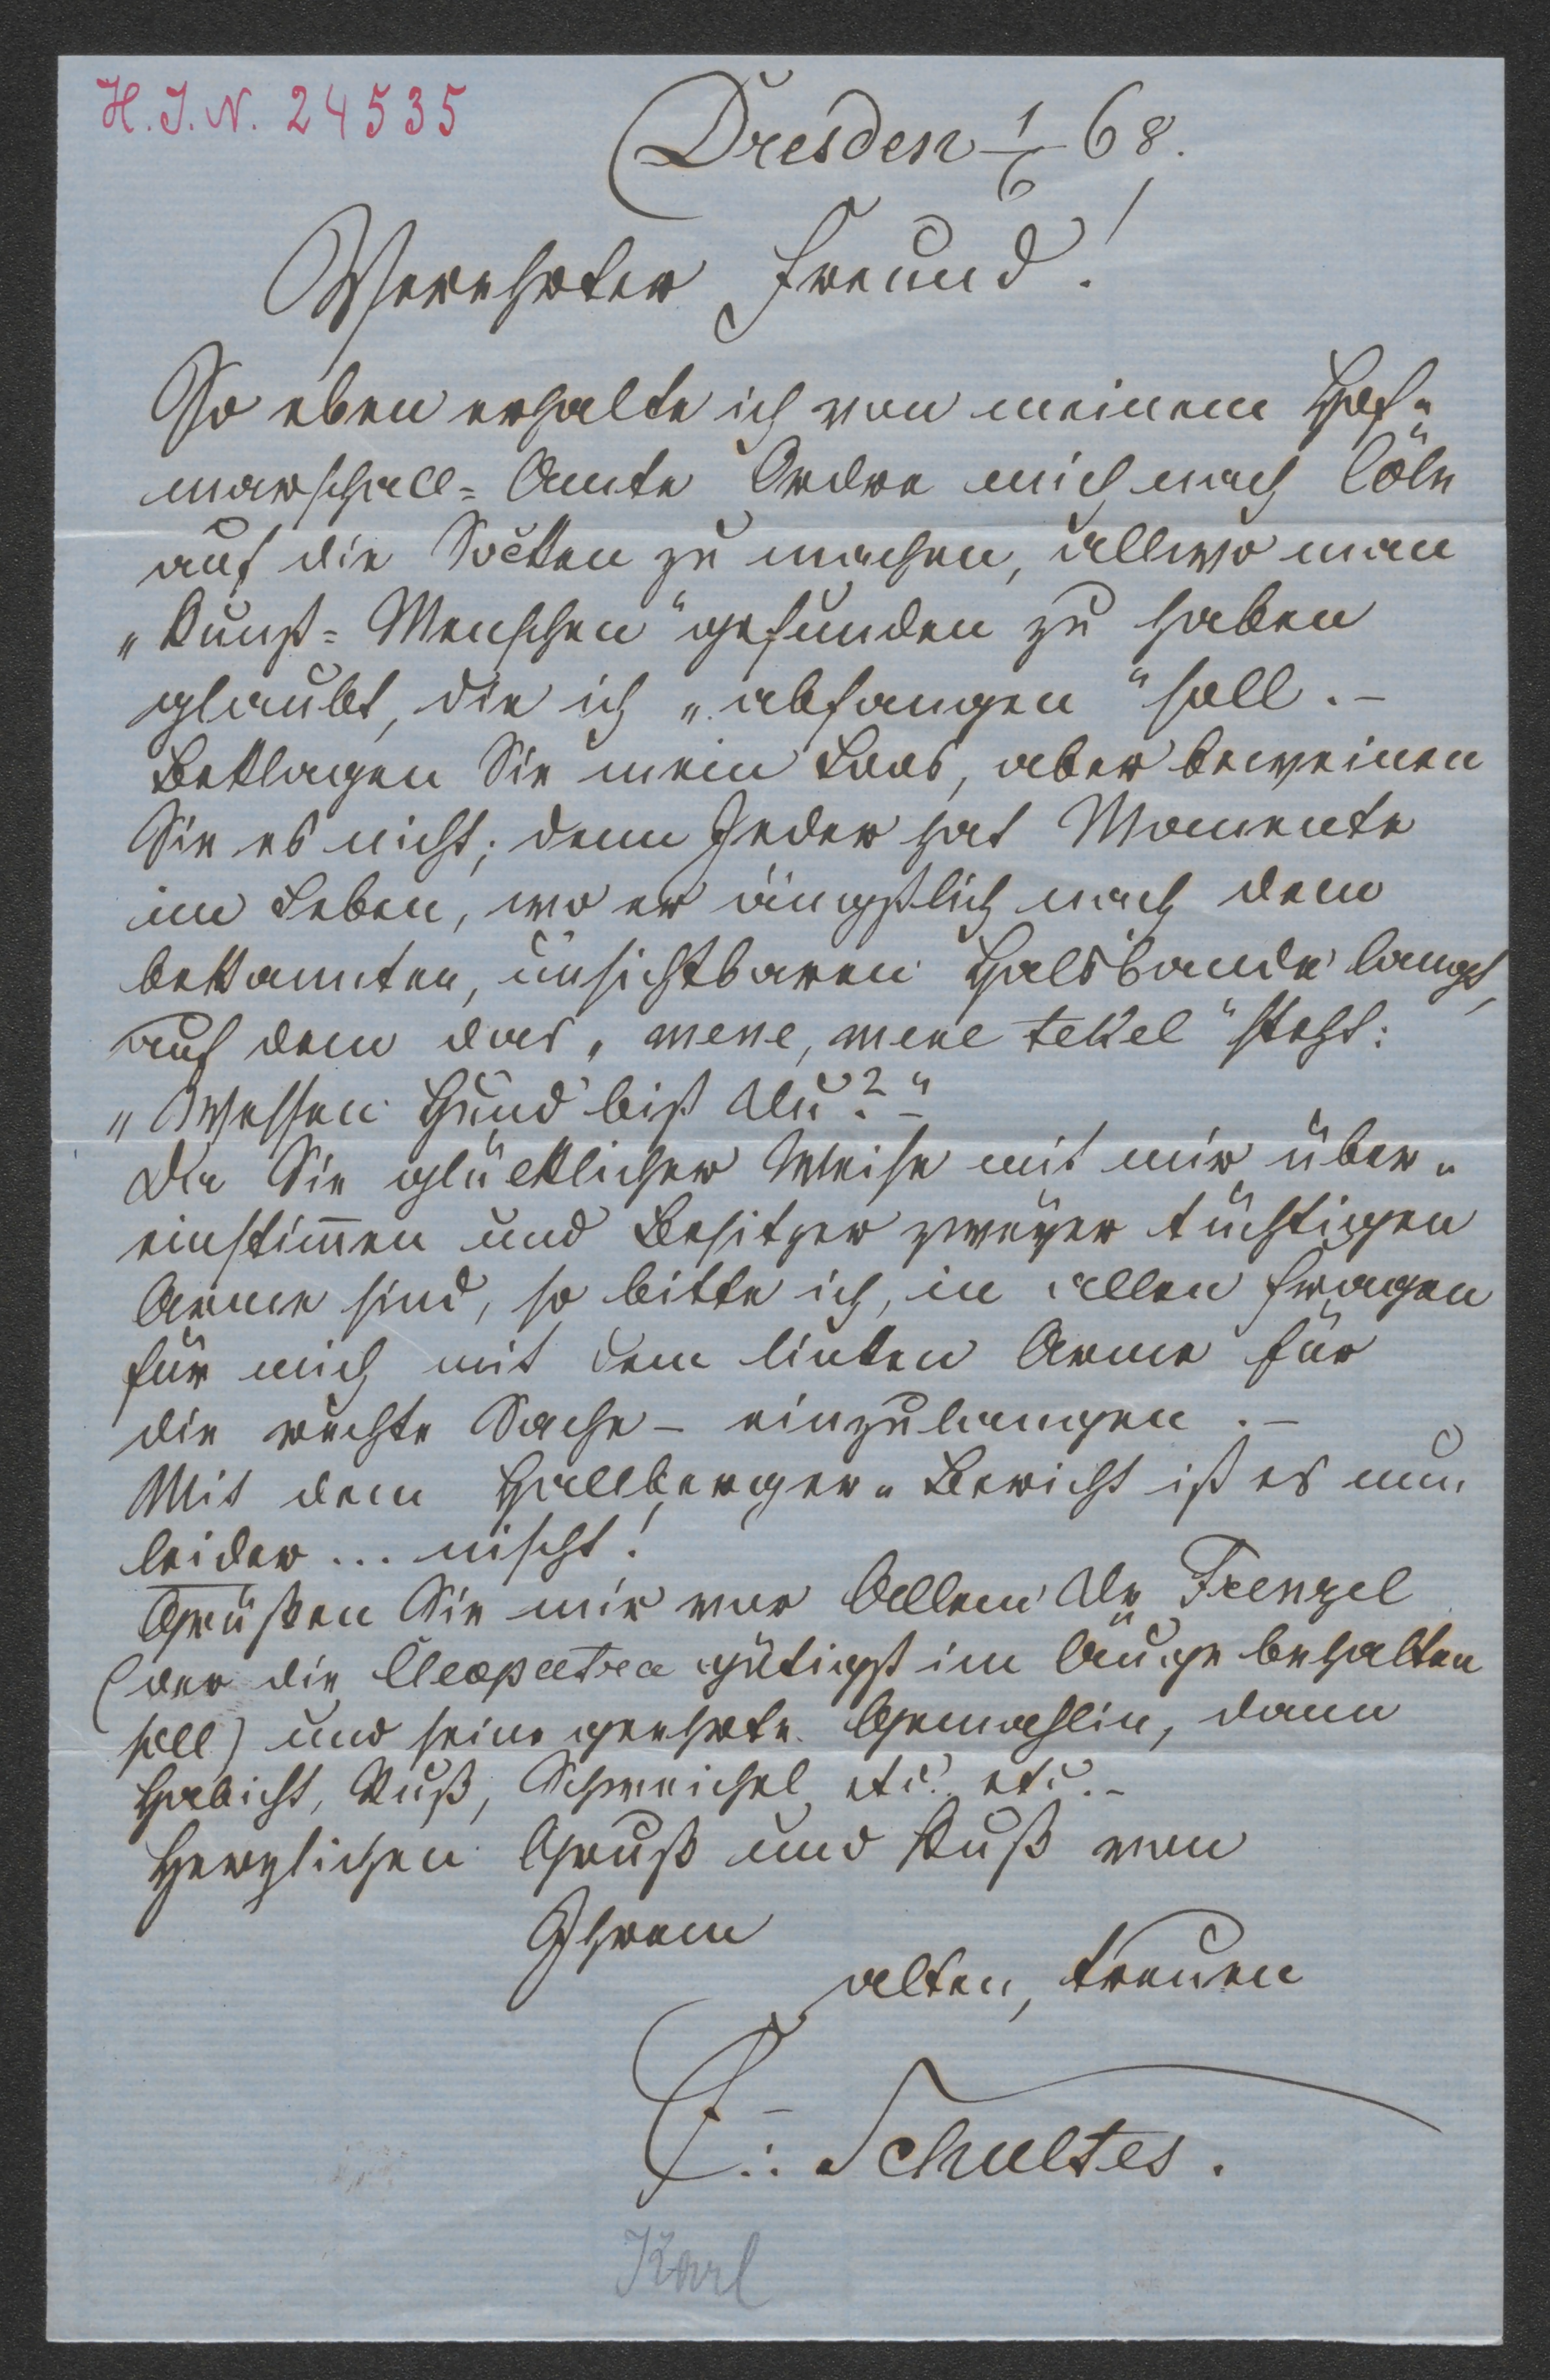 H. I. N. 24535
Dresden 1/6 68.
Verehrter Freund!
So eben erhalte ich von meinem Hof-
marschall-Amte Ordre mich nach Cöln
auf die Socken zu machen, allwo man
„Kunst-Menschen“ gefunden zu haben
glaubt, die ich „abfangen“ soll. –
Beklagen Sie mein Loos, aber beweinen
Sie es nicht; denn Jeder hat Momente
im Leben, wo er ängstlich nach dem
bekannten, unsichtbaren Halsbande langt,
auf dem das „mene, mene tekel“ steht:
„Wessen Hund bist Du?“ –
Da Sie glücklicher Weise mit mir über-
einstim̄en und Besitzer zweyer tüchtigen
Arme sind, so bitte ich, in allen Fragen
für mich mit dem linken Arme für
die rechte Sache – einzulangen. –
Mit dem Hallberger-Bericht ist es nun
leider ... nischt!
Grüßen Sie mir vor Allem Dr Frenzel
(der die Cleopatra gütigst im Auge behalten
soll) und seine geehrte Gemahlin, dann
Habicht, Ruß, Schweichel etc. etc. –
Herzlichen Gruß und Kuß von
Ihrem
alten, treuen
C. Schultes.
Karl